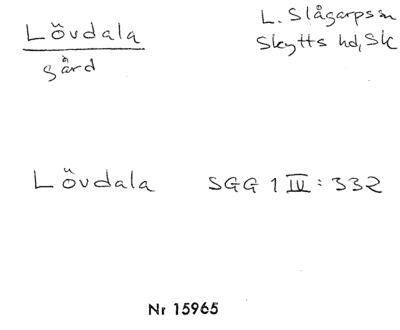 Lövdala
gård
L. Slågarps sn
Skytts hd, Sk
Lövdala SGG 1 IV: 332
Nr 15965